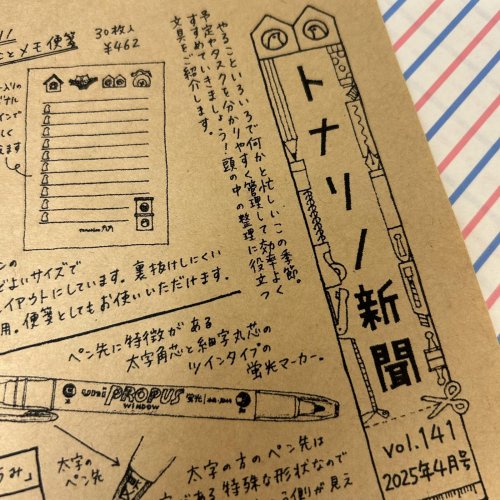 トナリノ新聞
vol.141
2025年4月号
やることいろいろで何かと忙しいこの季節。
予定やタスクを分かりやすく管理して効率よく
すすめていきましょう！頭の中の整理に役立つ
文具をご紹介します。
ことメモ便箋
30枚入
¥462
どよいサイズで
イアウトにしています。裏抜けしにくい
用。便箋としてもお使いいただけます。
ペン先に特徴がある
太字角芯と細字丸芯の
ツインタイプの
蛍光マーカー。
uni PROPUS
WINDOW
蛍光
太字の
ペン先
太字の方のペン先は
である特殊な形状なので
側が見え